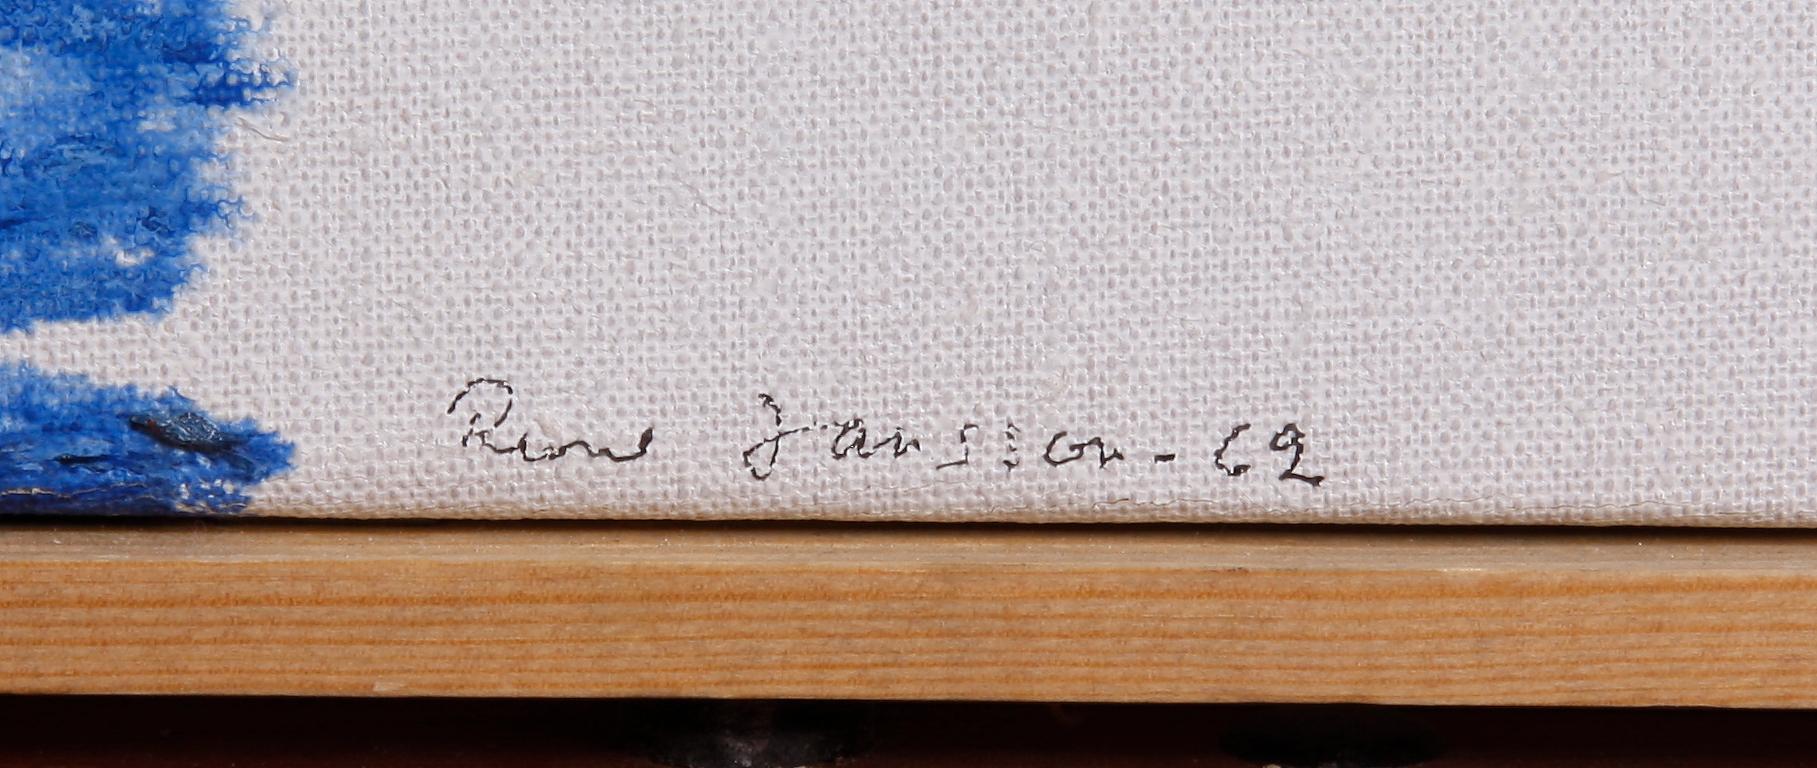 Rune Jansson - 62